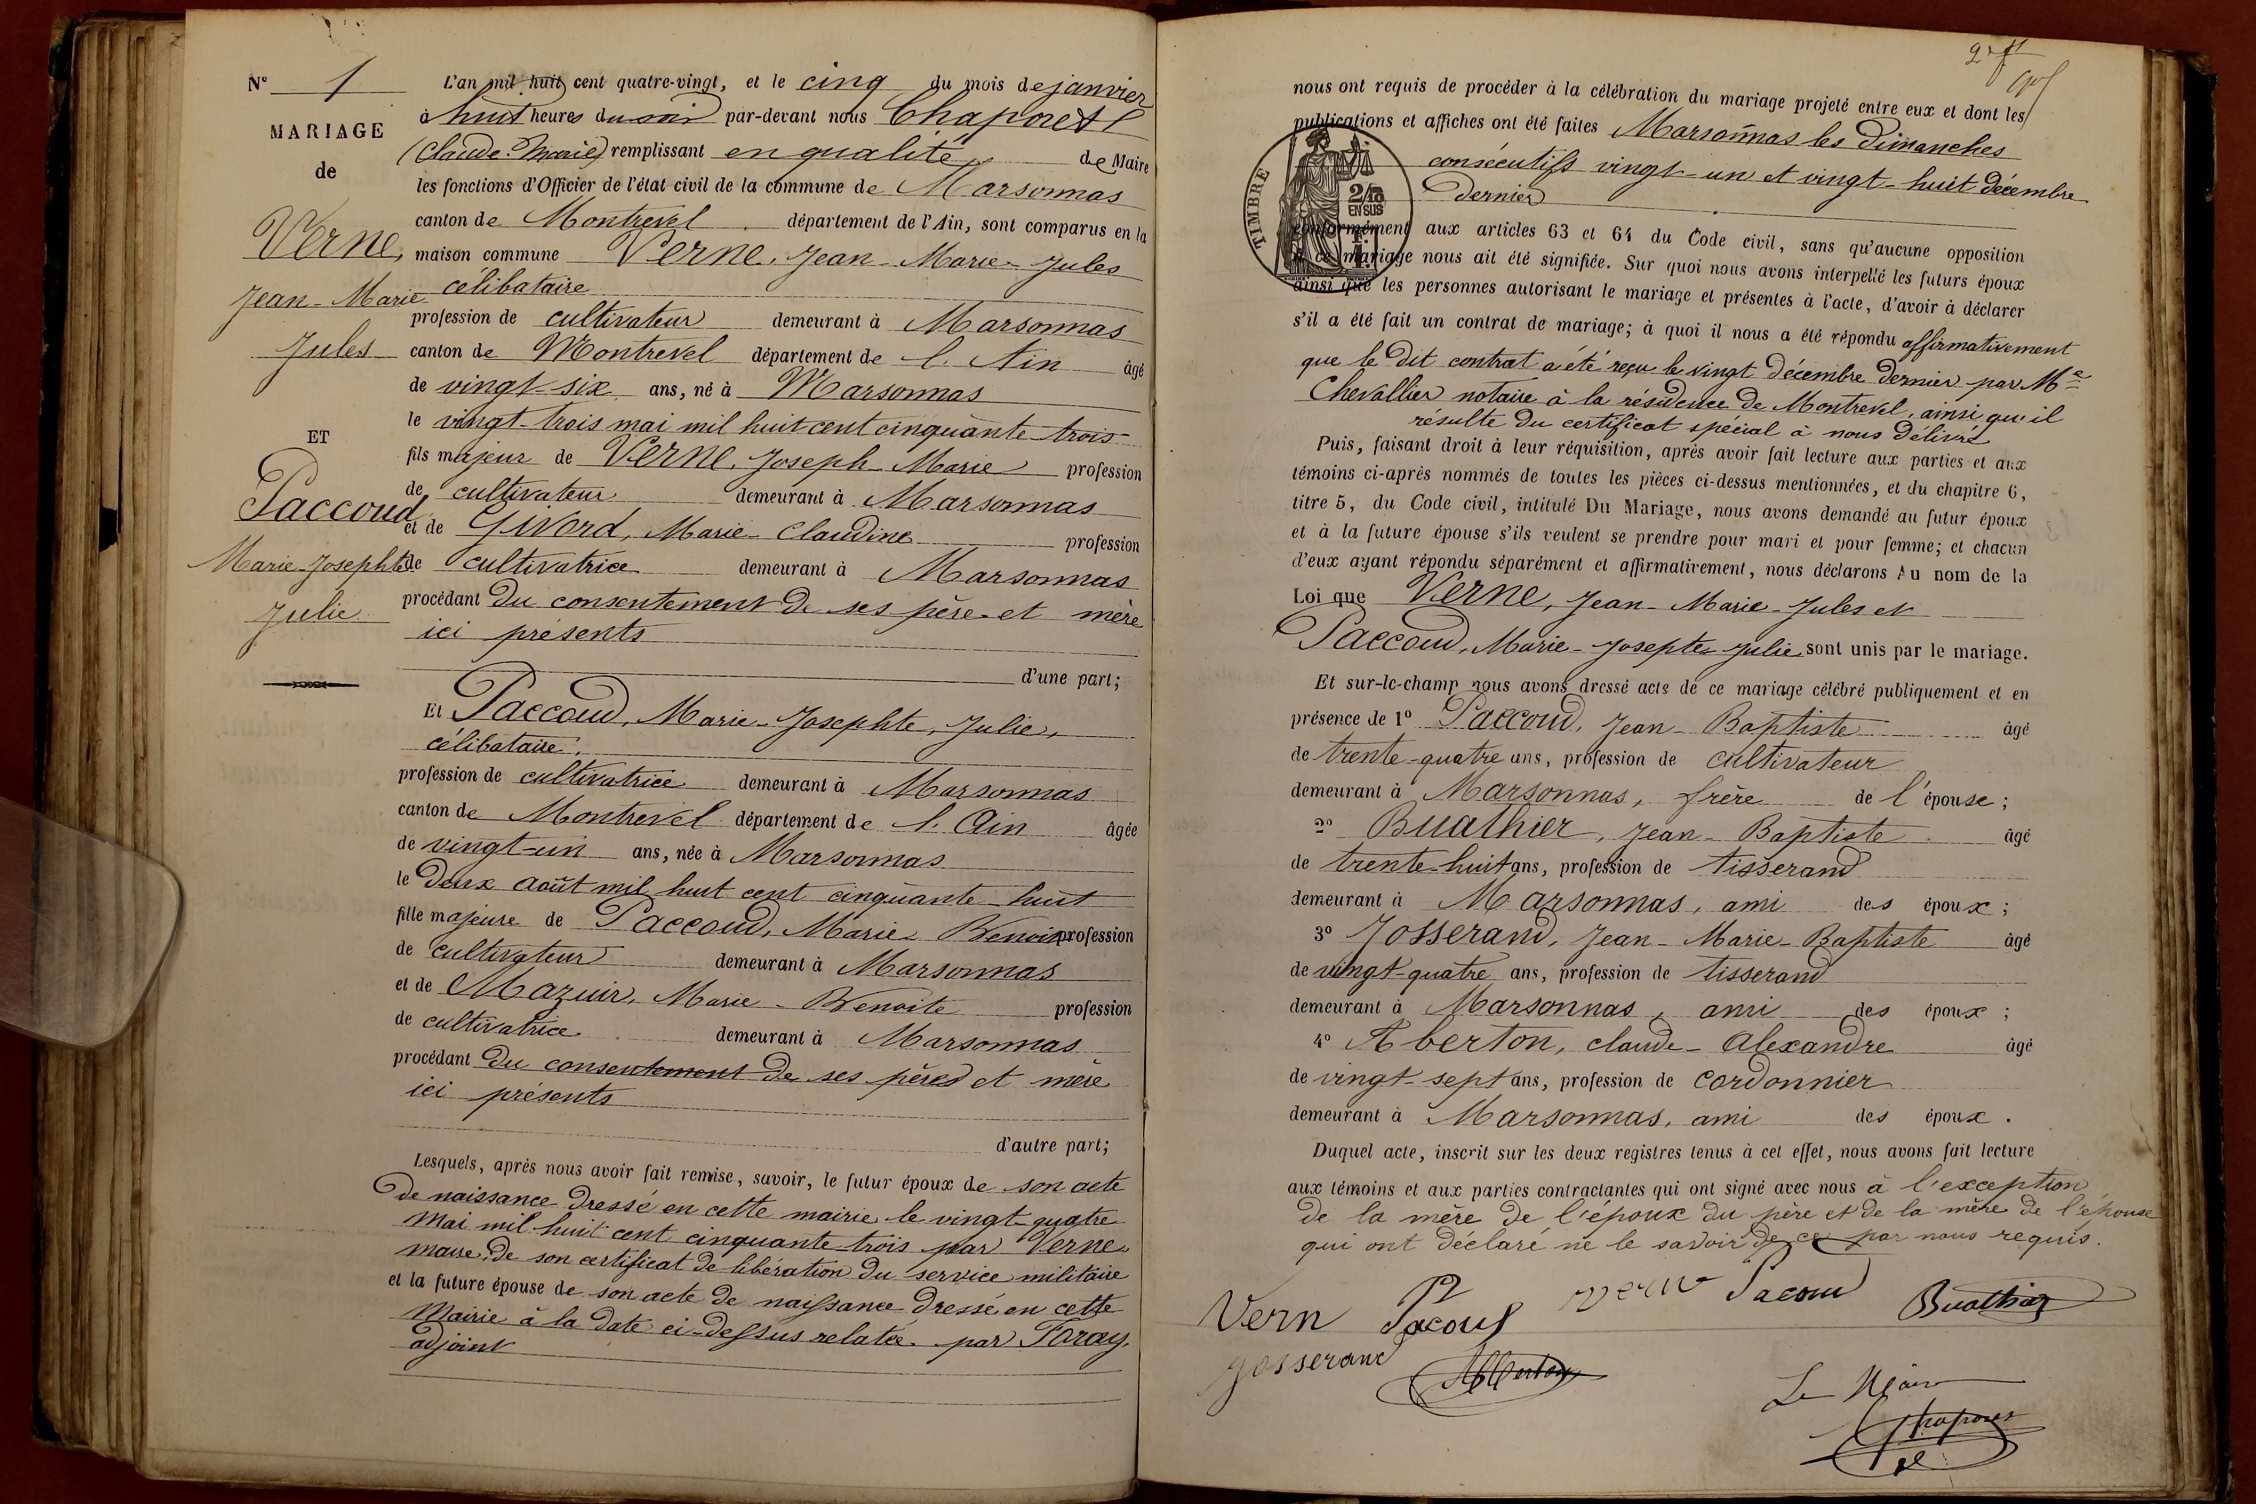 N° 1
MARIAGE
de
Verne,
Jean-Marie
Jules
ET
Paccoud
Marie-Josephte
Julie
L'an mil huit cent quatre-vingt, et le cinq du mois de janvier
à huit heures du soir par-devant nous Chaponet
(Claude-Marie) remplissant en qualité de Maire
les fonctions d'Officier de l'état civil de la commune de Marsonnas
canton de Montrevel département de l'Ain, sont comparus en la
maison commune Verne, Jean-Marie-Jules
célibataire
profession de cultivateur demeurant à Marsonnas
canton de Montrevel département de l'Ain âgé
de vingt-six ans, né à Marsonnas
le vingt-trois mai mil huit cent cinquante-trois
fils majeur de Verne, Joseph Marie profession
de cultivateur demeurant à Marsonnas
et de Givord, Marie-Claudine profession
de cultivatrice demeurant à Marsonnas
procédant du consentement de ses père et mère
ici présents
d'une part;
Et Paccoud, Marie-Josephte, Julie,
célibataire,
profession de cultivatrice demeurant à Marsonnas
canton de Montrevel département de l'Ain âgée
de vingt-un ans, née à Marsonnas
le deux août mil huit cent cinquante-huit
fille majeure de Paccoud, Marie-Benoit profession
de cultivateur demeurant à Marsonnas
et de Mazuir, Marie-Benoite profession
de cultivatrice demeurant à Marsonnas
procédant du consentement de ses père et mère
ici présents
d'autre part;
Lesquels, après nous avoir fait remise, savoir, le futur époux de son acte
de naissance dressé en cette mairie le vingt-quatre
mai mil huit cent cinquante-trois par Verne
maire, de son certificat de libération du service militaire
et la future épouse de son acte de naissance dressé en cette
mairie à la date ci-dessus relatée par Foray,
adjoint
nous ont requis de procéder à la célébration du mariage projeté entre eux et dont les
publications et affiches ont été faites Marsonnas les dimanches
consécutifs vingt-un et vingt-huit décembre
dernier
TIMBRE
2/10
EN SUS
conformément aux articles 63 et 64 du Code civil, sans qu'aucune opposition
à ce mariage nous ait été signifiée. Sur quoi nous avons interpellé les futurs époux
ainsi que les personnes autorisant le mariage et présentes à l'acte, d'avoir à déclarer
s'il a été fait un contrat de mariage; à quoi il nous a été répondu affirmativement
que le dit contrat a été reçu le vingt décembre dernier par Me
Chevallier notaire à la résidence de Montrevel, ainsi qu'il
résulte du certificat spécial à nous délivré
Puis, faisant droit à leur réquisition, après avoir fait lecture aux parties et aux
témoins ci-après nommés de toutes les pièces ci-dessus mentionnées, et du chapitre 6,
titre 5, du Code civil, intitulé Du Mariage, nous avons demandé au futur époux
et à la future épouse s'ils veulent se prendre pour mari et pour femme; et chacun
d'eux ayant répondu séparément et affirmativement, nous déclarons Au nom de la
Loi que Verne, Jean-Marie-Jules et
Paccoud, Marie-Josepte-Julie sont unis par le mariage.
Et sur-le-champ nous avons dressé acte de ce mariage célébré publiquement et en
présence de 1° Paccoud, Jean-Baptiste âgé
de trente-quatre ans, profession de cultivateur
demeurant à Marsonnas, frère de l'épouse;
2° Buathier, Jean-Baptiste âgé
de trente-huit ans, profession de tisserand
demeurant à Marsonnas, ami des époux;
3° Josserand, Jean-Marie-Baptiste âgé
de vingt-quatre ans, profession de tisserand
demeurant à Marsonnas, ami des époux;
4° Aberton, Claude-Alexandre âgé
de vingt-sept ans, profession de cordonnier
demeurant à Marsonnas, ami des époux.
Duquel acte, inscrit sur les deux registres tenus à cet effet, nous avons fait lecture
aux témoins et aux parties contractantes qui ont signé avec nous à l'exception
de la mère de l'époux du père et de la mère de l'épouse
qui ont déclaré ne le savoir de ce par nous requis.
Vern Pacoud verne Pacoud Buathier
Josserand Abberton
Le Maire
Chaponet